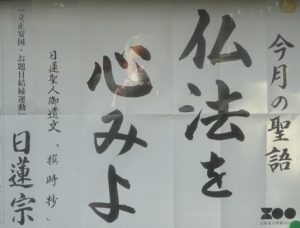 今月の聖語
仏法を
心みよ
日蓮聖人御遺文『撰時抄』
「立正安国・お題目結縁運動」
日蓮宗
ZOO